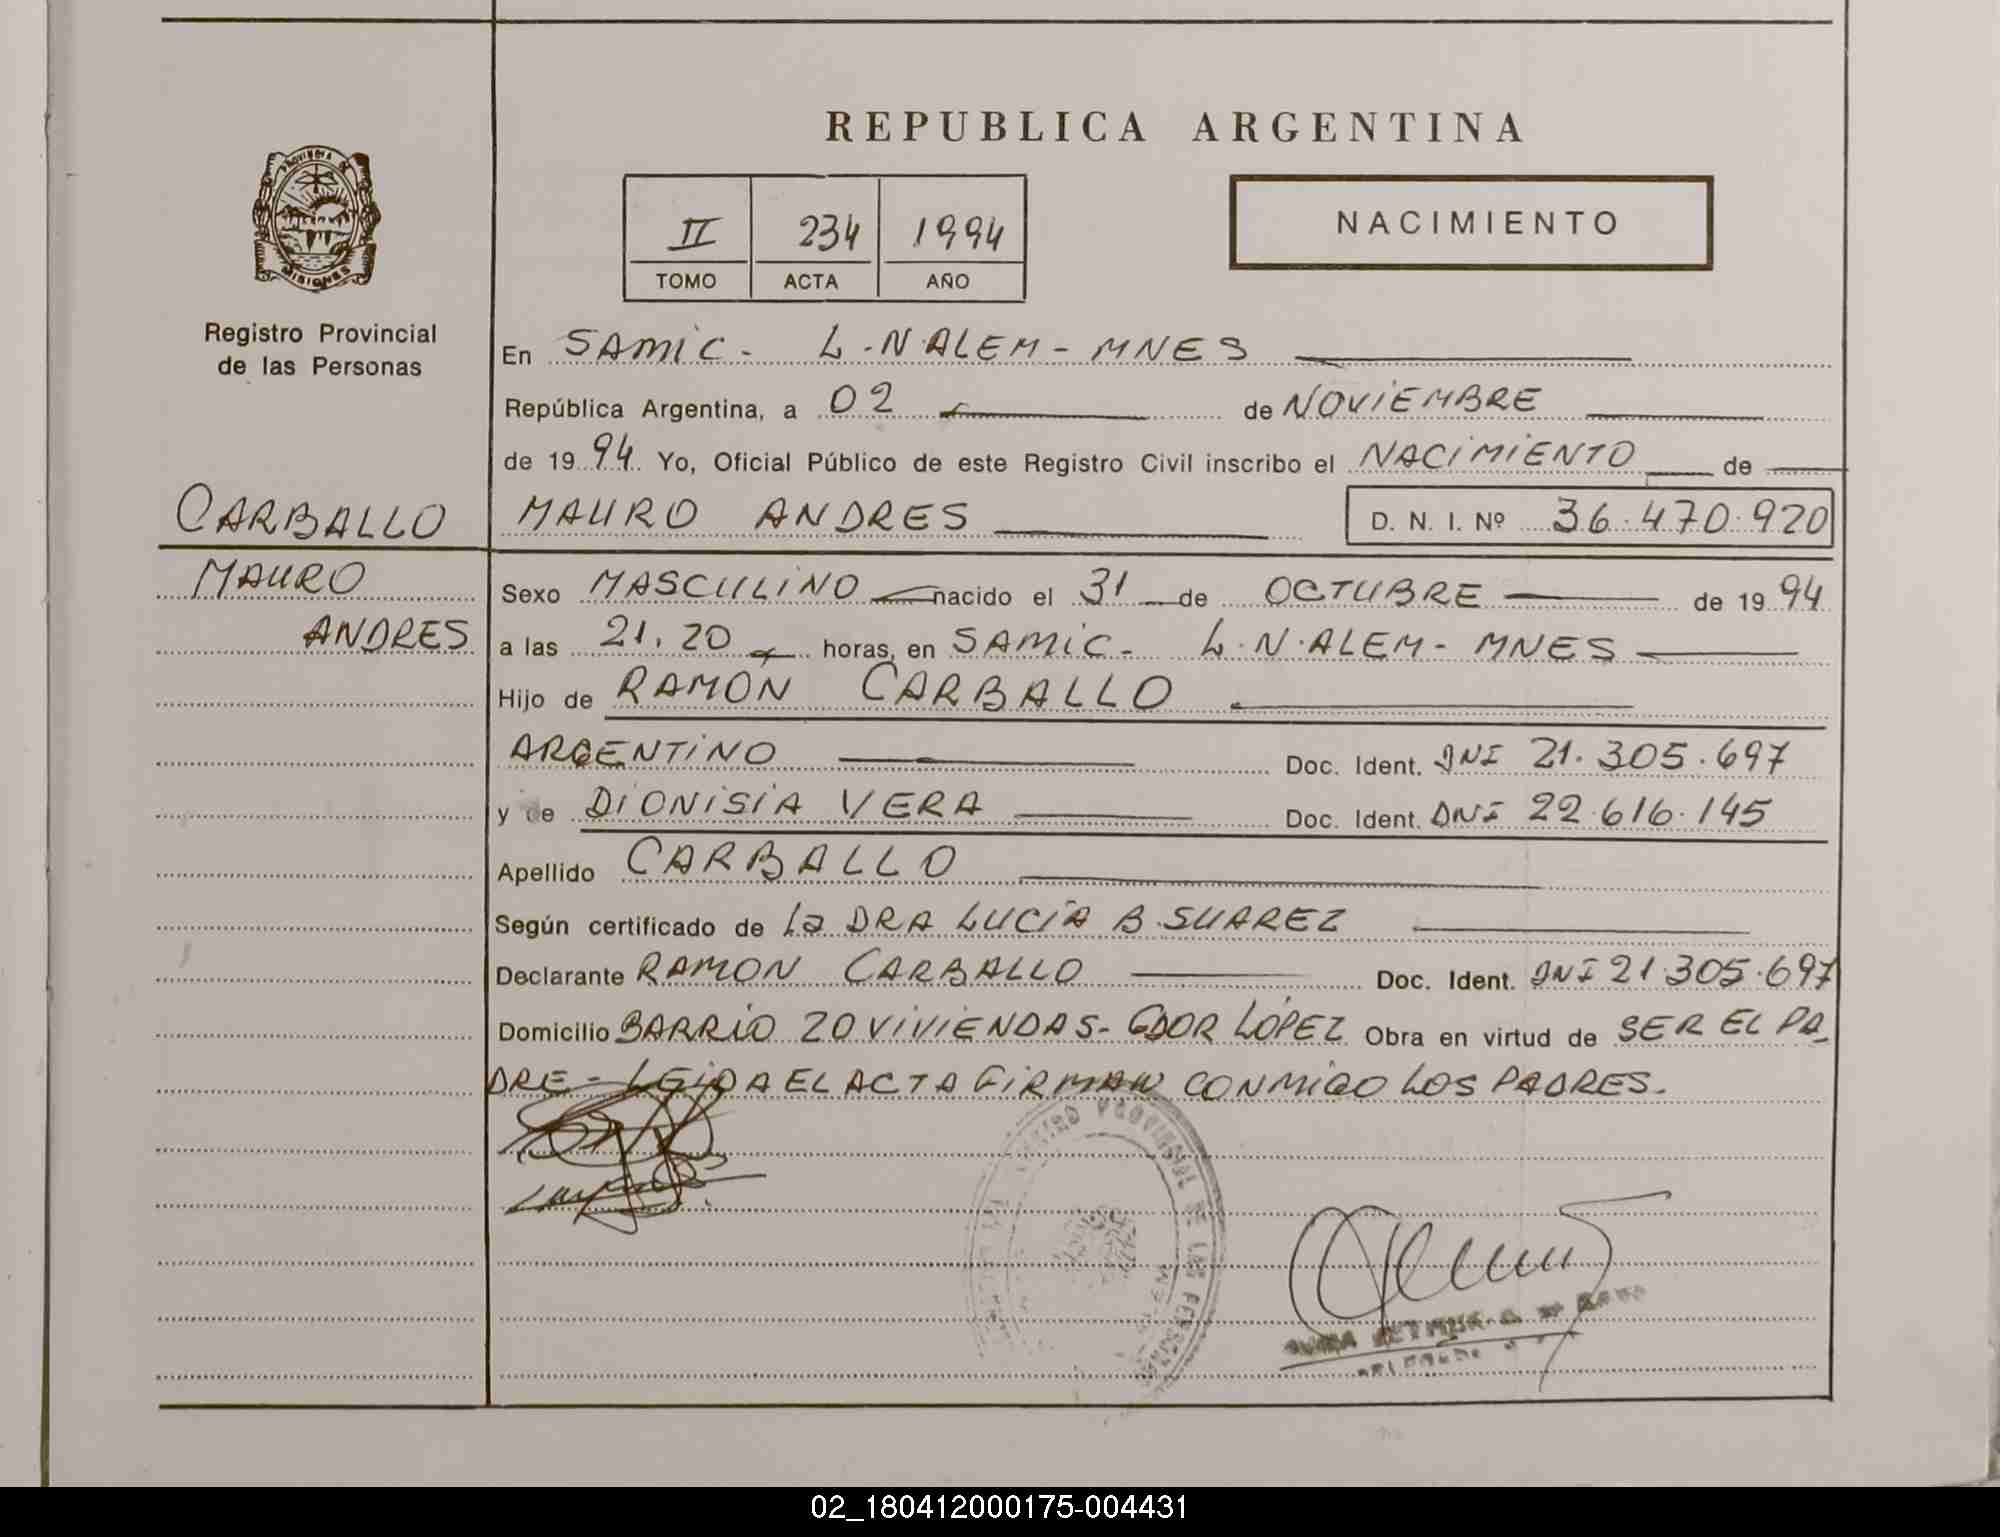 REPUBLICA ARGENTINA
PROVINCIA DE
MISIONES
II 234 1994
TOMO ACTA AÑO
NACIMIENTO
Registro Provincial
de las Personas
En SAMIC - L.N.ALEM - MNES
República Argentina, a 02 de NOVIEMBRE
de 1994 Yo, Oficial Público de este Registro Civil inscribo el NACIMIENTO de
CARBALLO
MAURO ANDRES D. N. I. Nº 36.470.920
MAURO
ANDRES
Sexo MASCULINO nacido el 31 de OCTUBRE de 1994
a las 21.20 horas, en SAMIC - L.N.ALEM - MNES
Hijo de RAMON CARBALLO
ARGENTINO Doc. Ident. DNI 21.305.697
y de DIONISIA VERA Doc. Ident. DNI 22.616.145
Apellido CARBALLO
Según certificado de La DRA LUCIA B. SUAREZ
Declarante RAMON CARBALLO Doc. Ident. DNI 21.305.697
Domicilio BARRIO 20 VIVIENDAS - GDOR LÓPEZ Obra en virtud de SER EL PA-
DRE - LEIDA EL ACTA FIRMAN CONMIGO LOS PADRES.
PROVINCIAL DE LAS PERSONAS
02_180412000175-004431